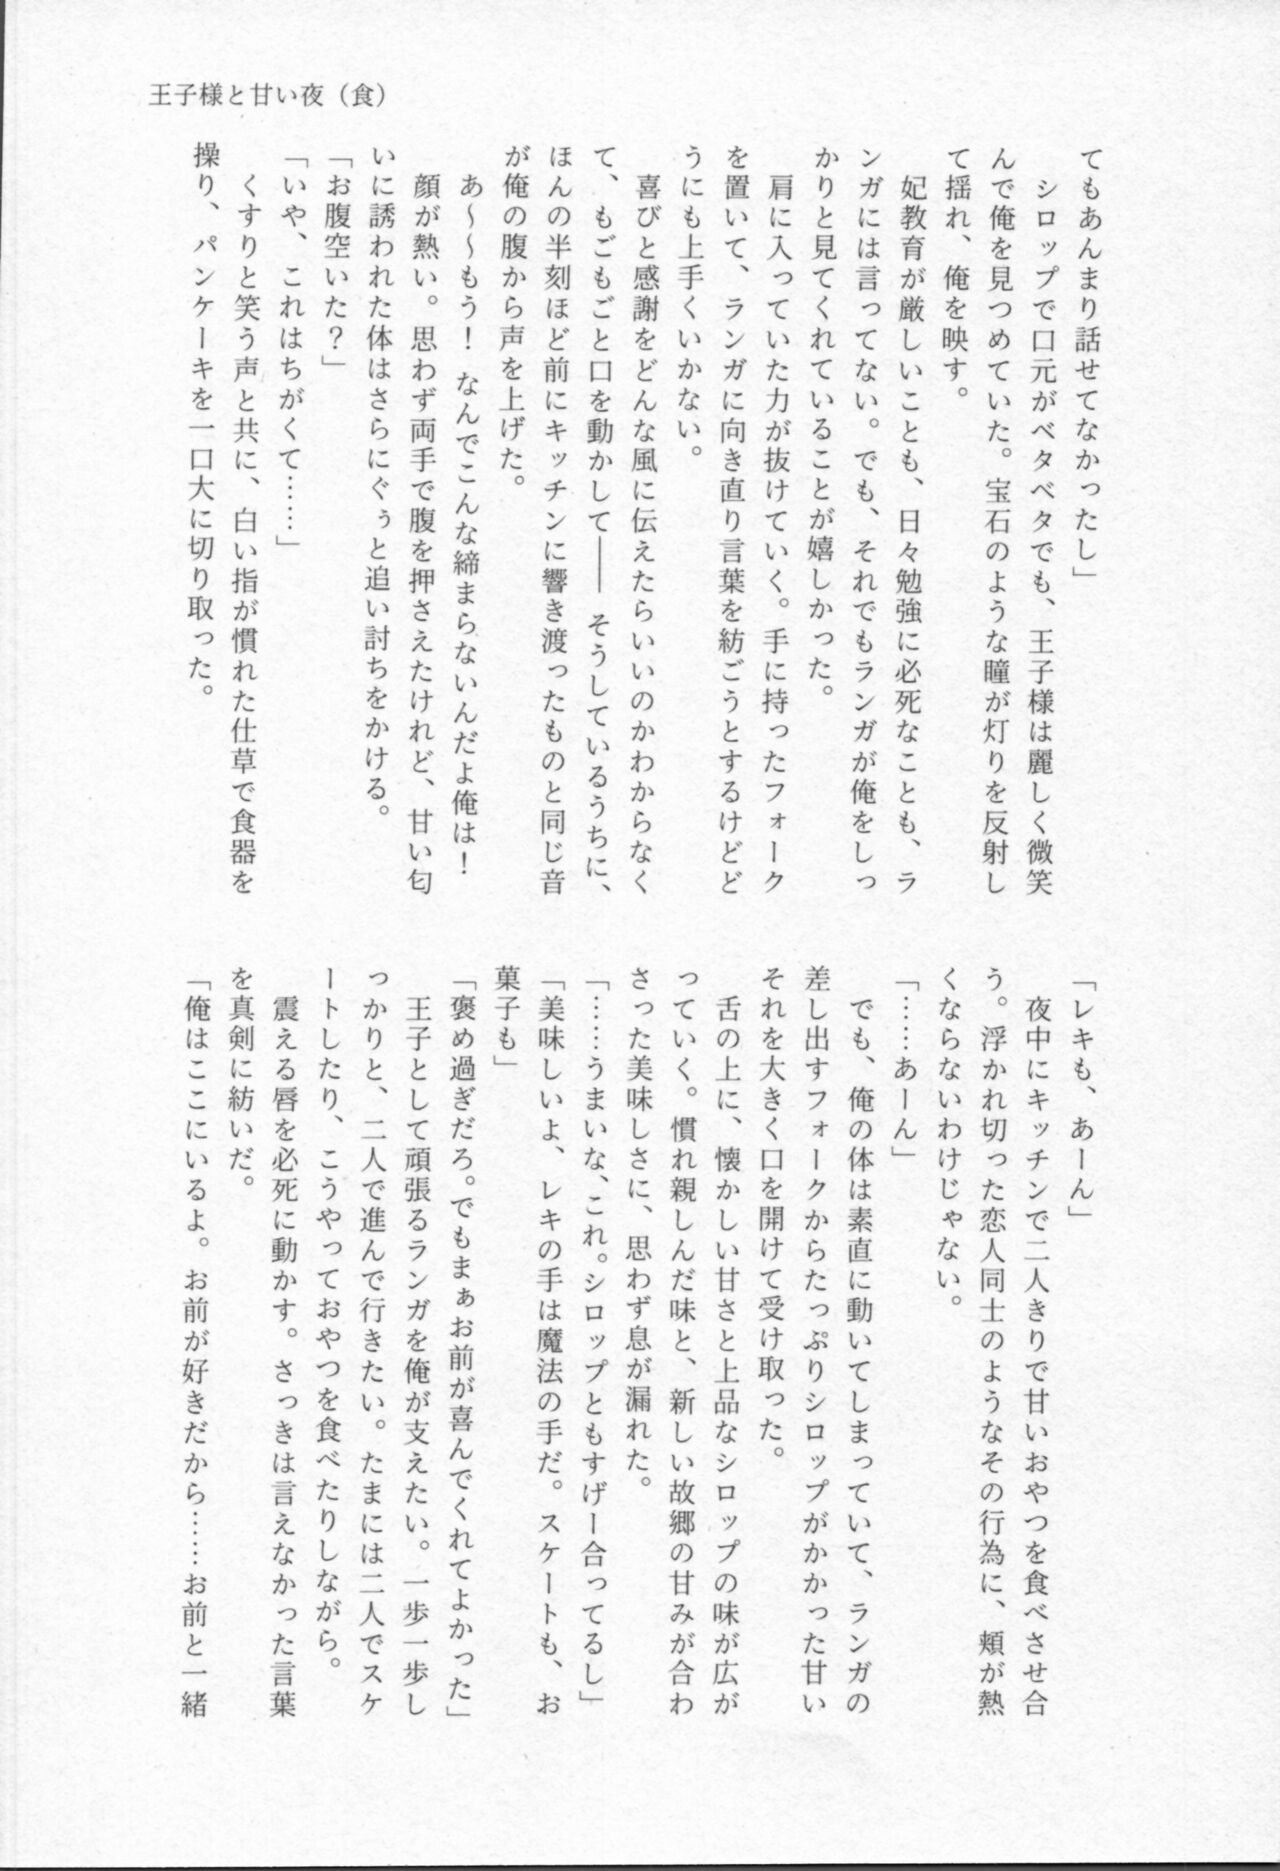 王子様と甘い夜（食）
てもあんまり話せてなかったし」
　シロップで口元がベタベタでも、王子様は麗しく微笑
んで俺を見つめていた。宝石のような瞳が灯りを反射し
て揺れ、俺を映す。
　妃教育が厳しいことも、日々勉強に必死なことも、ラ
ンガには言ってない。でも、それでもランガが俺をしっ
かりと見てくれていることが嬉しかった。
　肩に入っていた力が抜けていく。手に持ったフォーク
を置いて、ランガに向き直り言葉を紡ごうとするけどど
うにも上手くいかない。
　喜びと感謝をどんな風に伝えたらいいのかわからなく
て、もごもごと口を動かして――　そうしているうちに、
ほんの半刻ほど前にキッチンに響き渡ったものと同じ音
が俺の腹から声を上げた。
　あ～～もう！　なんでこんな締まらないんだよ俺は！
　顔が熱い。思わず両手で腹を押さえたけれど、甘い匂
いに誘われた体はさらにぐぅと追い討ちをかける。
「お腹空いた？」
「いや、これはちがくて……」
　くすりと笑う声と共に、白い指が慣れた仕草で食器を
操り、パンケーキを一口大に切り取った。
「レキも、あーん」
　夜中にキッチンで二人きりで甘いおやつを食べさせ合
う。浮かれ切った恋人同士のようなその行為に、頬が熱
くならないわけじゃない。
「……あーん」
　でも、俺の体は素直に動いてしまっていて、ランガの
差し出すフォークからたっぷりシロップがかかった甘い
それを大きく口を開けて受け取った。
　舌の上に、懐かしい甘さと上品なシロップの味が広が
っていく。慣れ親しんだ味と、新しい故郷の甘みが合わ
さった美味しさに、思わず息が漏れた。
「……うまいな、これ。シロップともすげー合ってるし」
「美味しいよ、レキの手は魔法の手だ。スケートも、お
菓子も」
「褒め過ぎだろ。でもまぁお前が喜んでくれてよかった」
　王子として頑張るランガを俺が支えたい。一歩一歩し
っかりと、二人で進んで行きたい。たまには二人でスケ
ートしたり、こうやっておやつを食べたりしながら。
　震える唇を必死に動かす。さっきは言えなかった言葉
を真剣に紡いだ。
「俺はここにいるよ。お前が好きだから……お前と一緒